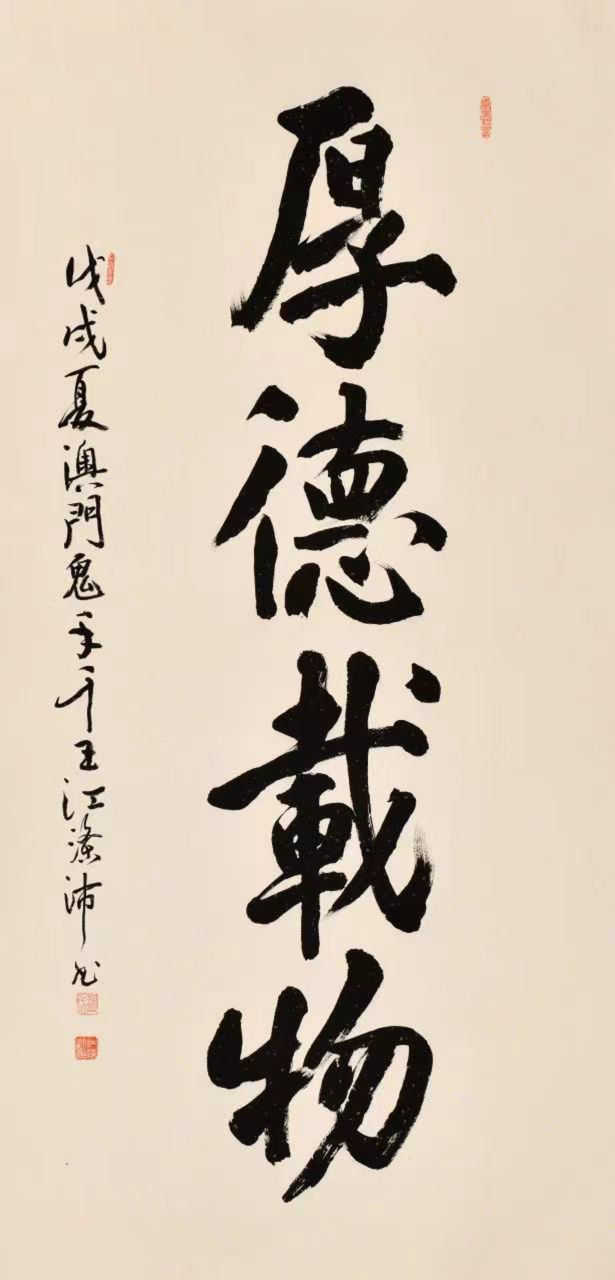 厚德載物
戊戌夏澳門鬼手千王江滌沛书